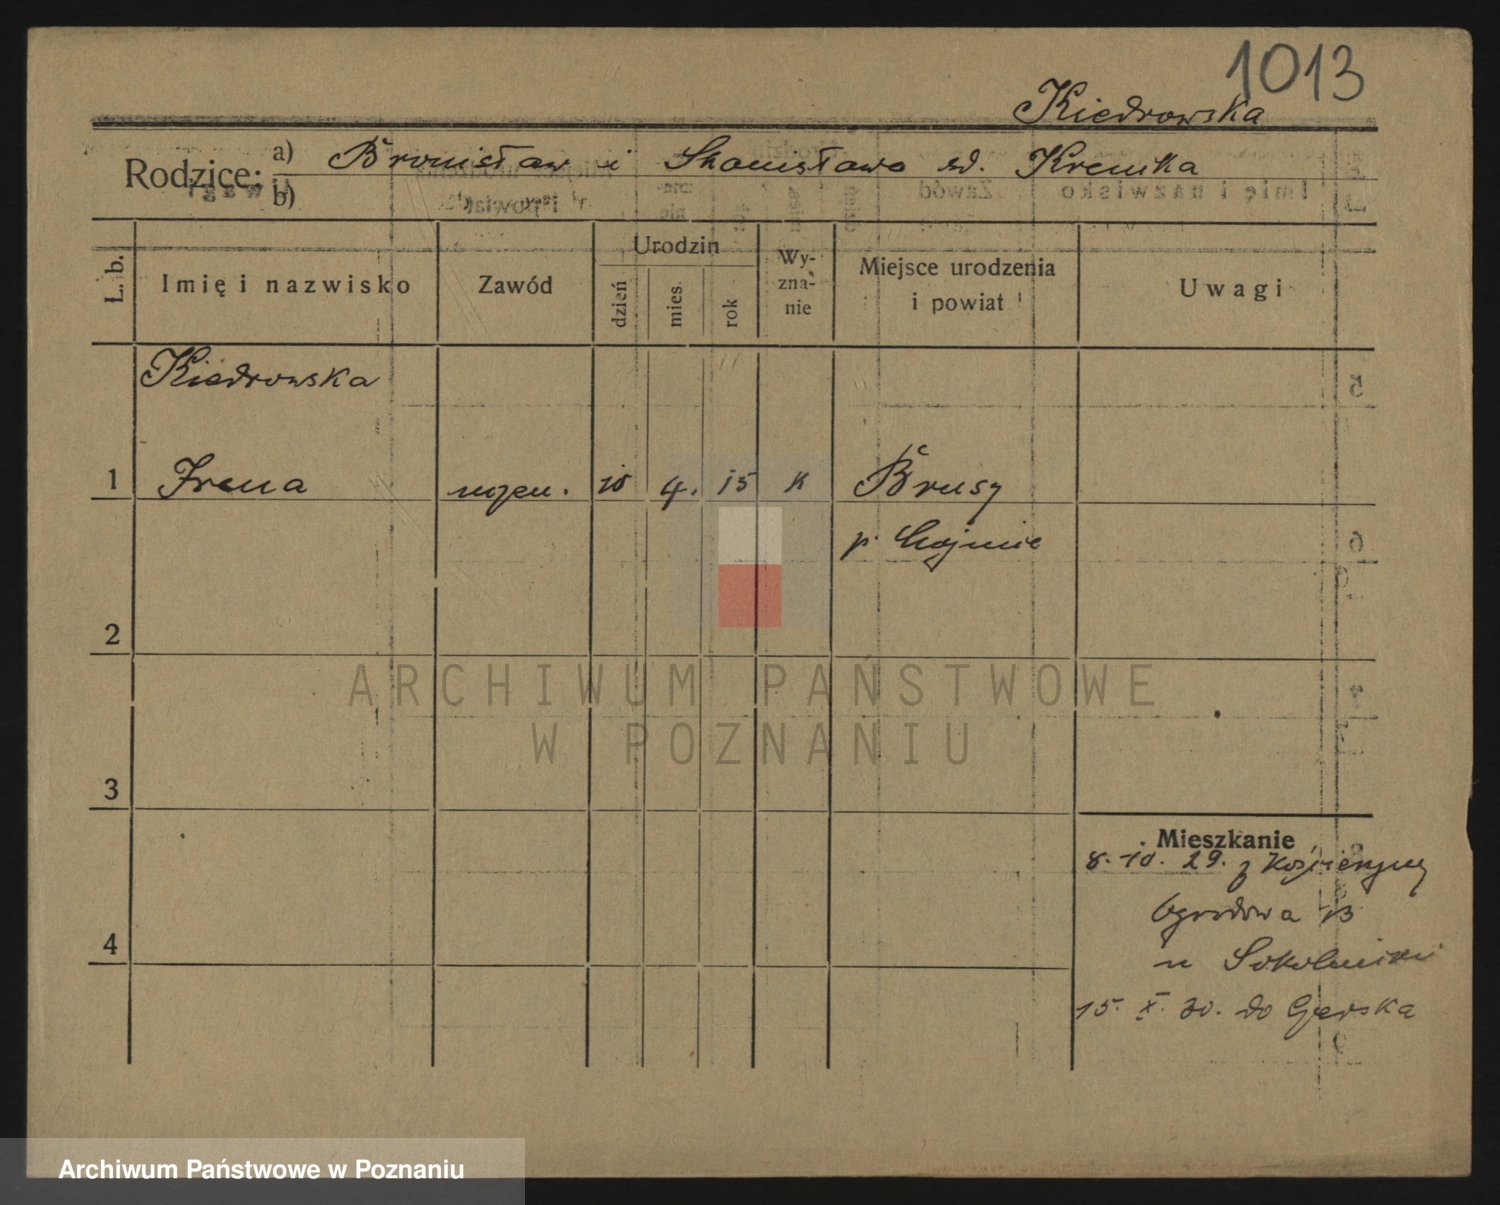 1013
Kiedrowska
Rodzice: a) Bronisław i Stanisława zd. Kremka
b)
L. b.
Imię i nazwisko
Zawód
Urodzin
dzień
mies.
rok
Wy-
zna-
nie
Miejsce urodzenia
i powiat
Uwagi
Kiedrowska
1 Irena uczen. 10 4. 15 k Brusy
p. Chojnice
2
ARCHIWUM PAŃSTWOWE
W POZNANIU
3
4
Mieszkanie
8. 10. 29. z Kościerzyny
Ogrodowa 13
u
15. X. 30. do Czerska
Archiwum Państwowe w Poznaniu